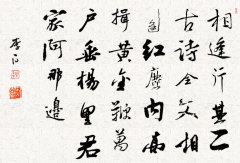 相逢行其二
古诗全文相
逢红塵内高
揖黄金鞭萬
户垂楊里君
家阿那邊
李白